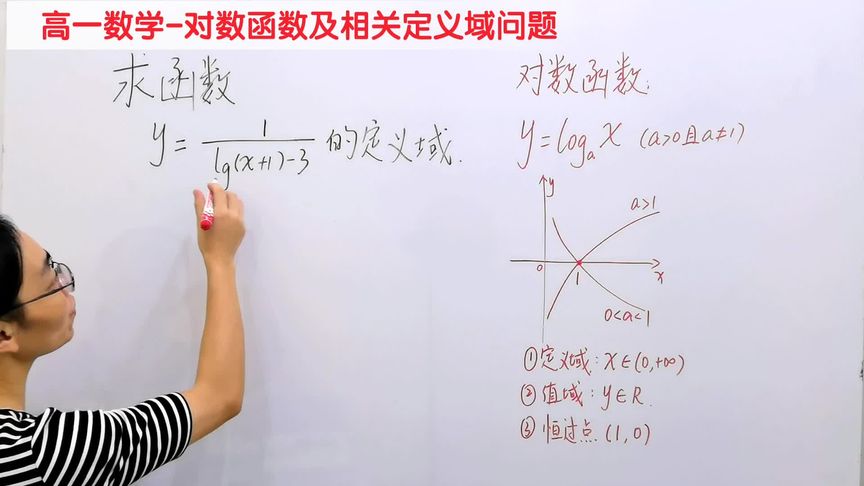 高一数学-对数函数及相关定义域问题
求函数
y = 1/(lg(x+1)-3) 的定义域.
对数函数:
y=logₐx (a>0且a≠1)
y
a>1
0
1
x
0<a<1
①定义域:x∈(0,+∞)
②值域:y∈R.
③恒过点(1,0)